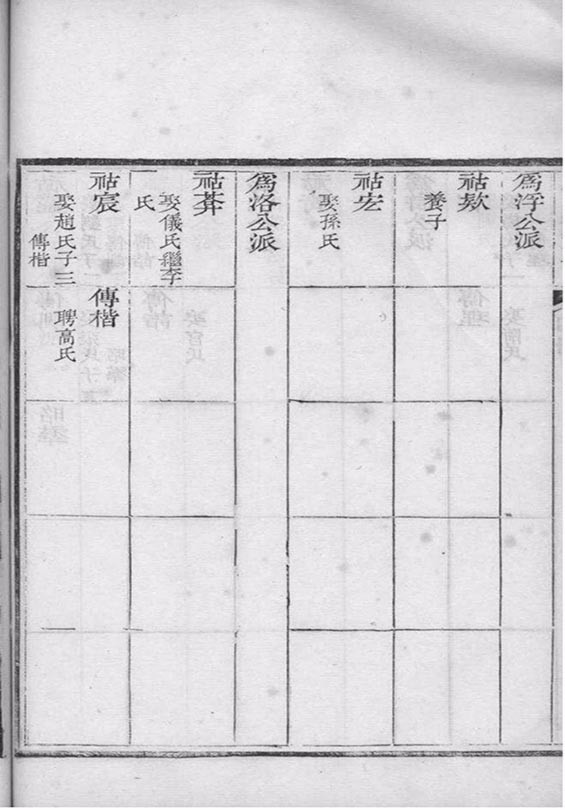 爲浮公派
祜欬
養子
祜宏
娶孫氏
爲洛公派
祜莽
娶儀氏繼李
氏
祜宸
娶趙氏子三
傳楷
傳楷
聘高氏